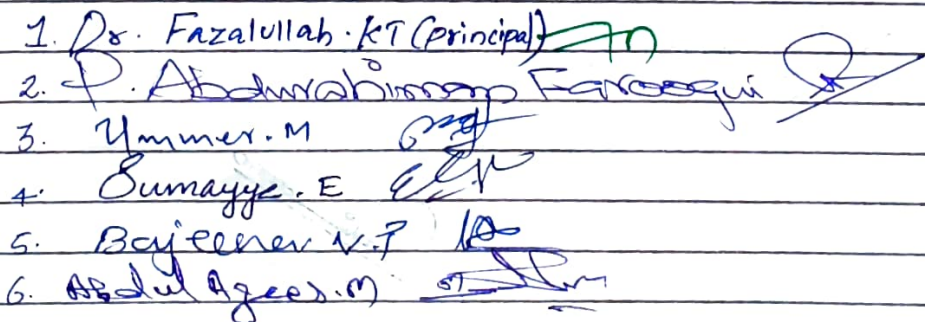 1. Dr. Fazalullah. KT (principal)
2. P. Abdurahiman Farooqui
3. Ummer. M
4. Sumayye. E
5. N.P
6. Abdul Azees. M